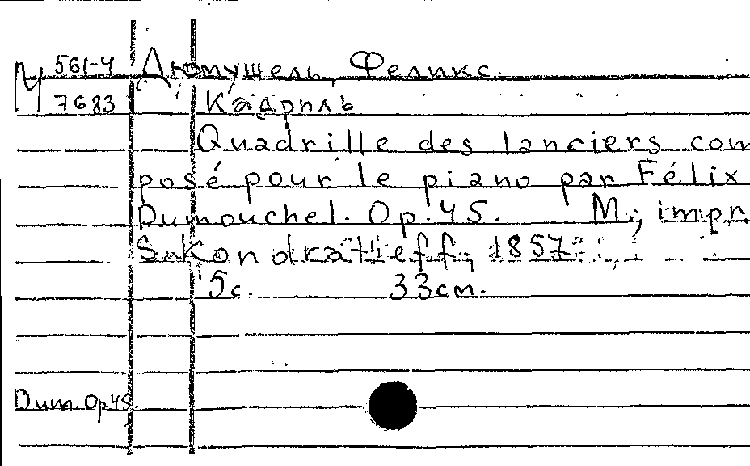 М 561-4 Дюмушель, Феликс.
7683 Кадриль
Quadrille des lanciers com
posé pour le piano par Félix
Dumouchel. Op. 45. M., impr
Kondratieff, 1857.
5 с. 33 см.
Dum. Op 45